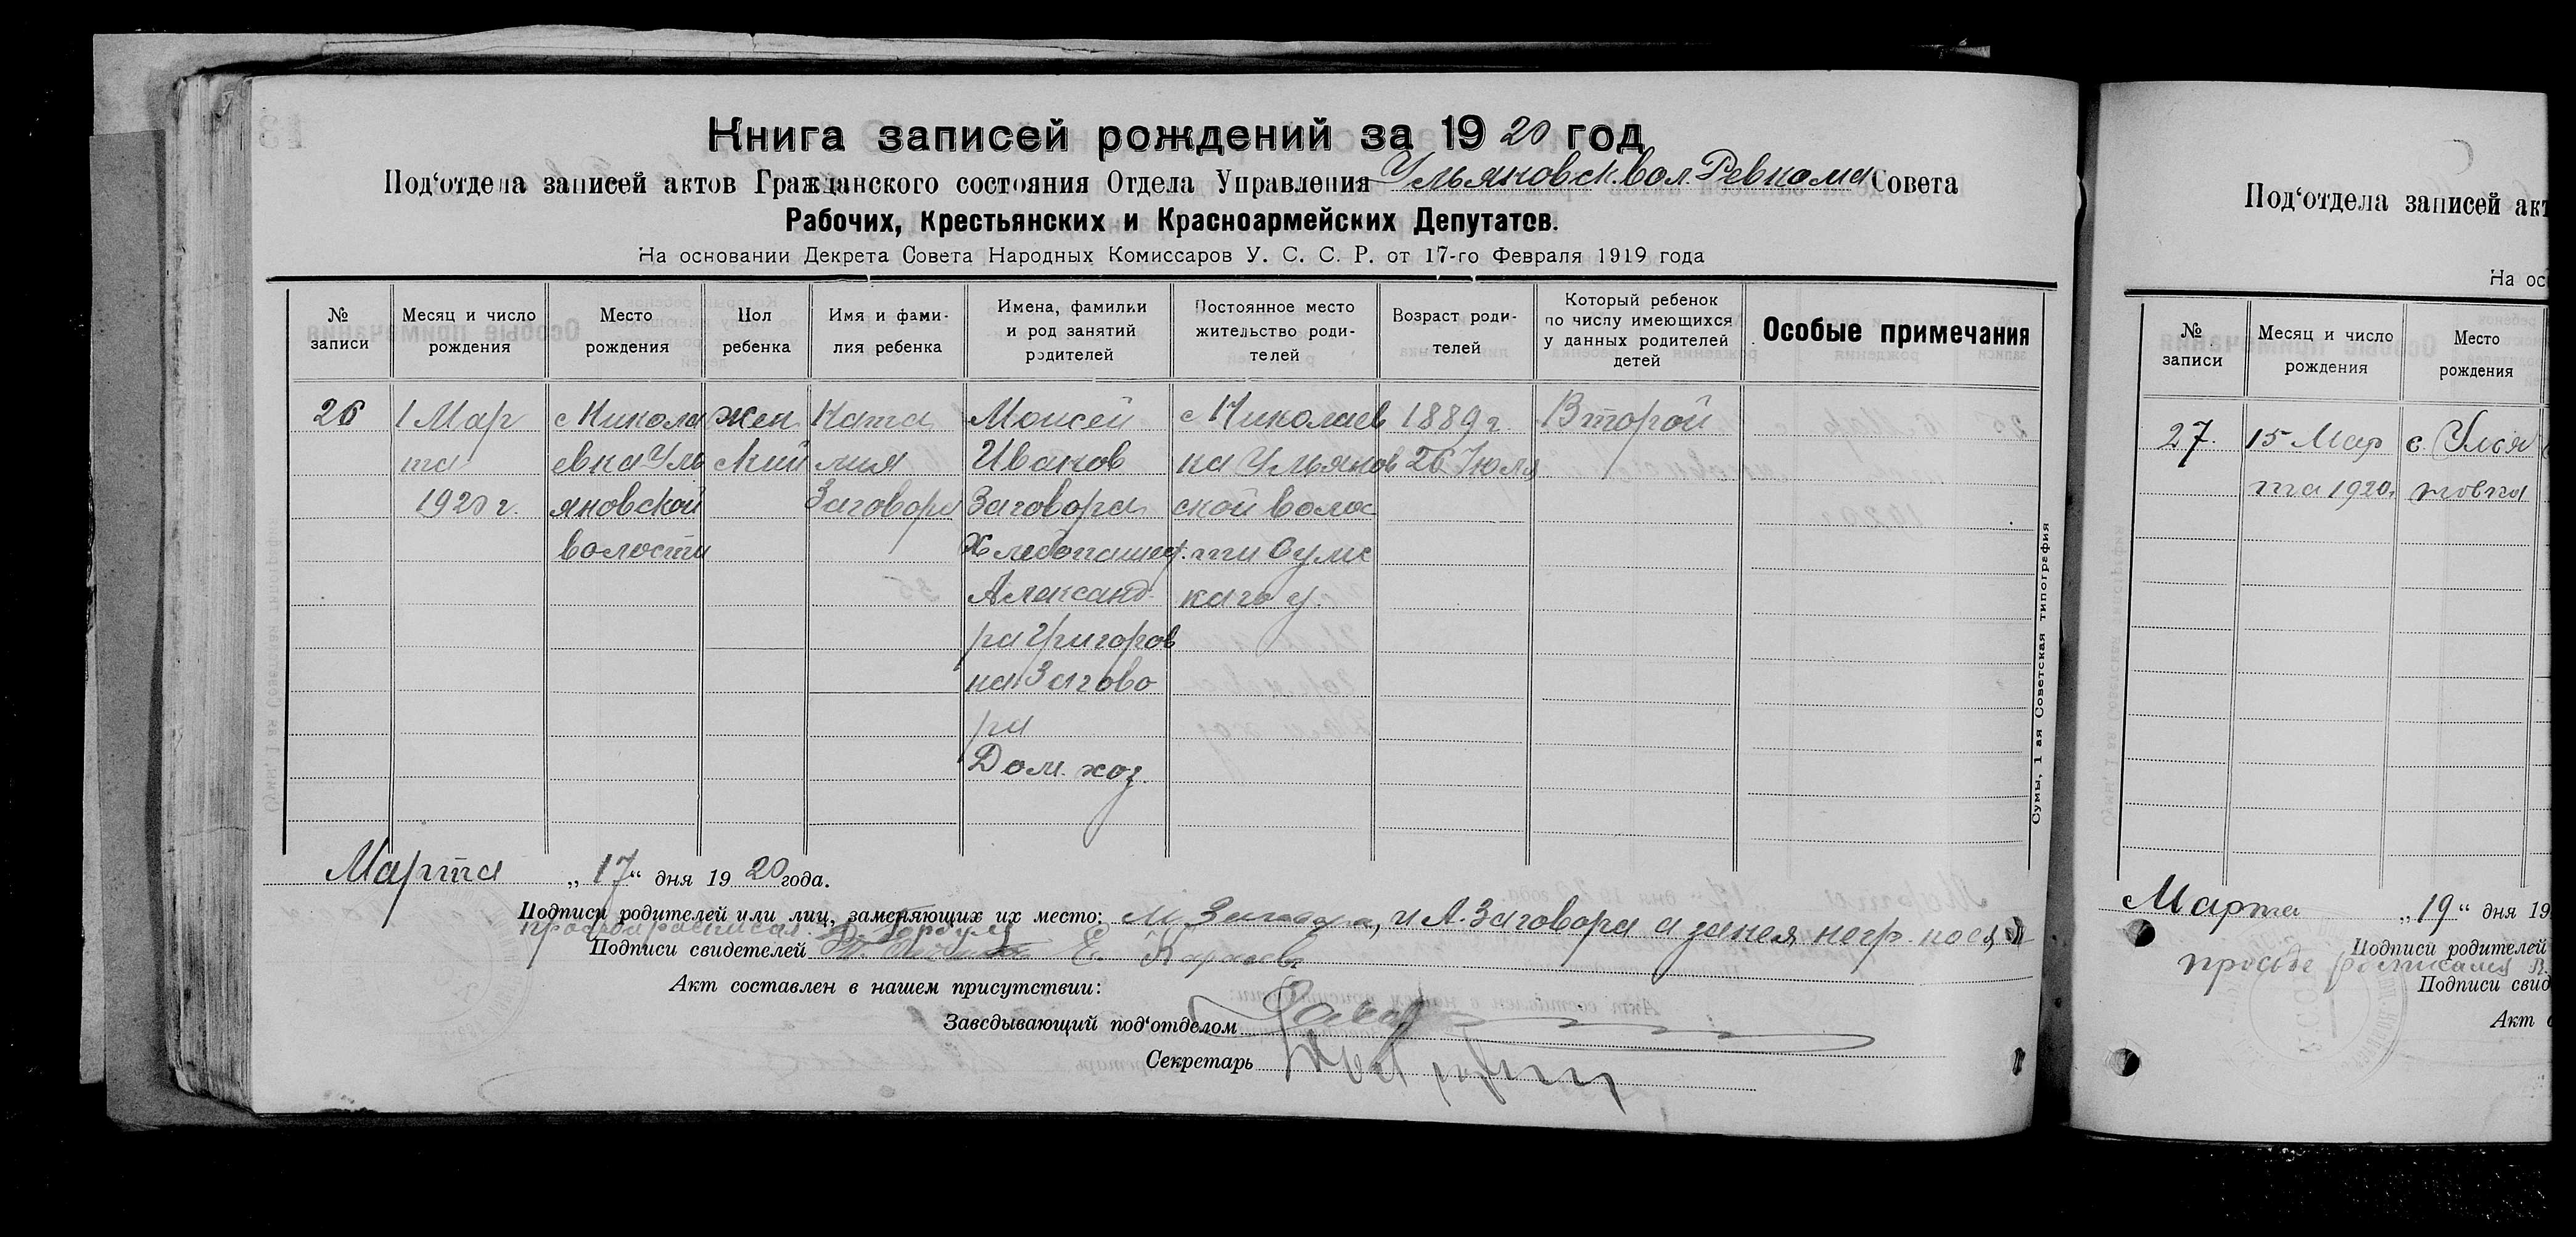 Книга записей рождений за 1920 год
Под‘отдела записей актов Гражданского состояния Отдела Управления Ульяновск. вол. Ревкома Совета
Рабочих, Крестьянских и Красноармейских Депутатов.
На основании Декрета Совета Народных Комиссаров У. С. С. Р. от 17-го Февраля 1919 года
№ записи
Месяц и число рождения
Место рождения
Пол ребенка
Имя и фами-
лия ребенка
Имена, фамилии
и род занятий
родителей
Постоянное место
жительство роди-
телей
Возраст роди-
телей
Который ребенок
по числу имеющихся
у данных родителей
детей
Особые примечания
26
1 Мар
та
1920 г.
с Никола
евка Уль
яновской
волости
жен
ский
Ката
лия
Заговора
Моисей
Иванов
Заговора
Хлебопашец.
Александ
ра Григоров
на Загово
ра
Дом. хоз.
с Николаев
ка Ульянов
ской волос
ти Сумс
каго у.
1889 г.
26 Июля
Второй
Сумы, 1 ая Советская типография
Марта „17“ дня 1920 года.
Подписи родителей или лиц, заменяющих их место: М. и А. Заговора а за нея негр.
Подписи свидетелей Е.
Акт составлен в нашем присутствии:
Заведывающий под‘отделом
Секретарь
Под‘отдела записей акт
На ос
№ записи
Месяц и число
рождения
Место
рождения
27.
15 Мар
та 1920.
с. Улья
новка
Марта „19“ дня 19
Подписи родителей
просьбе росписался
Подписи свид
Акт с